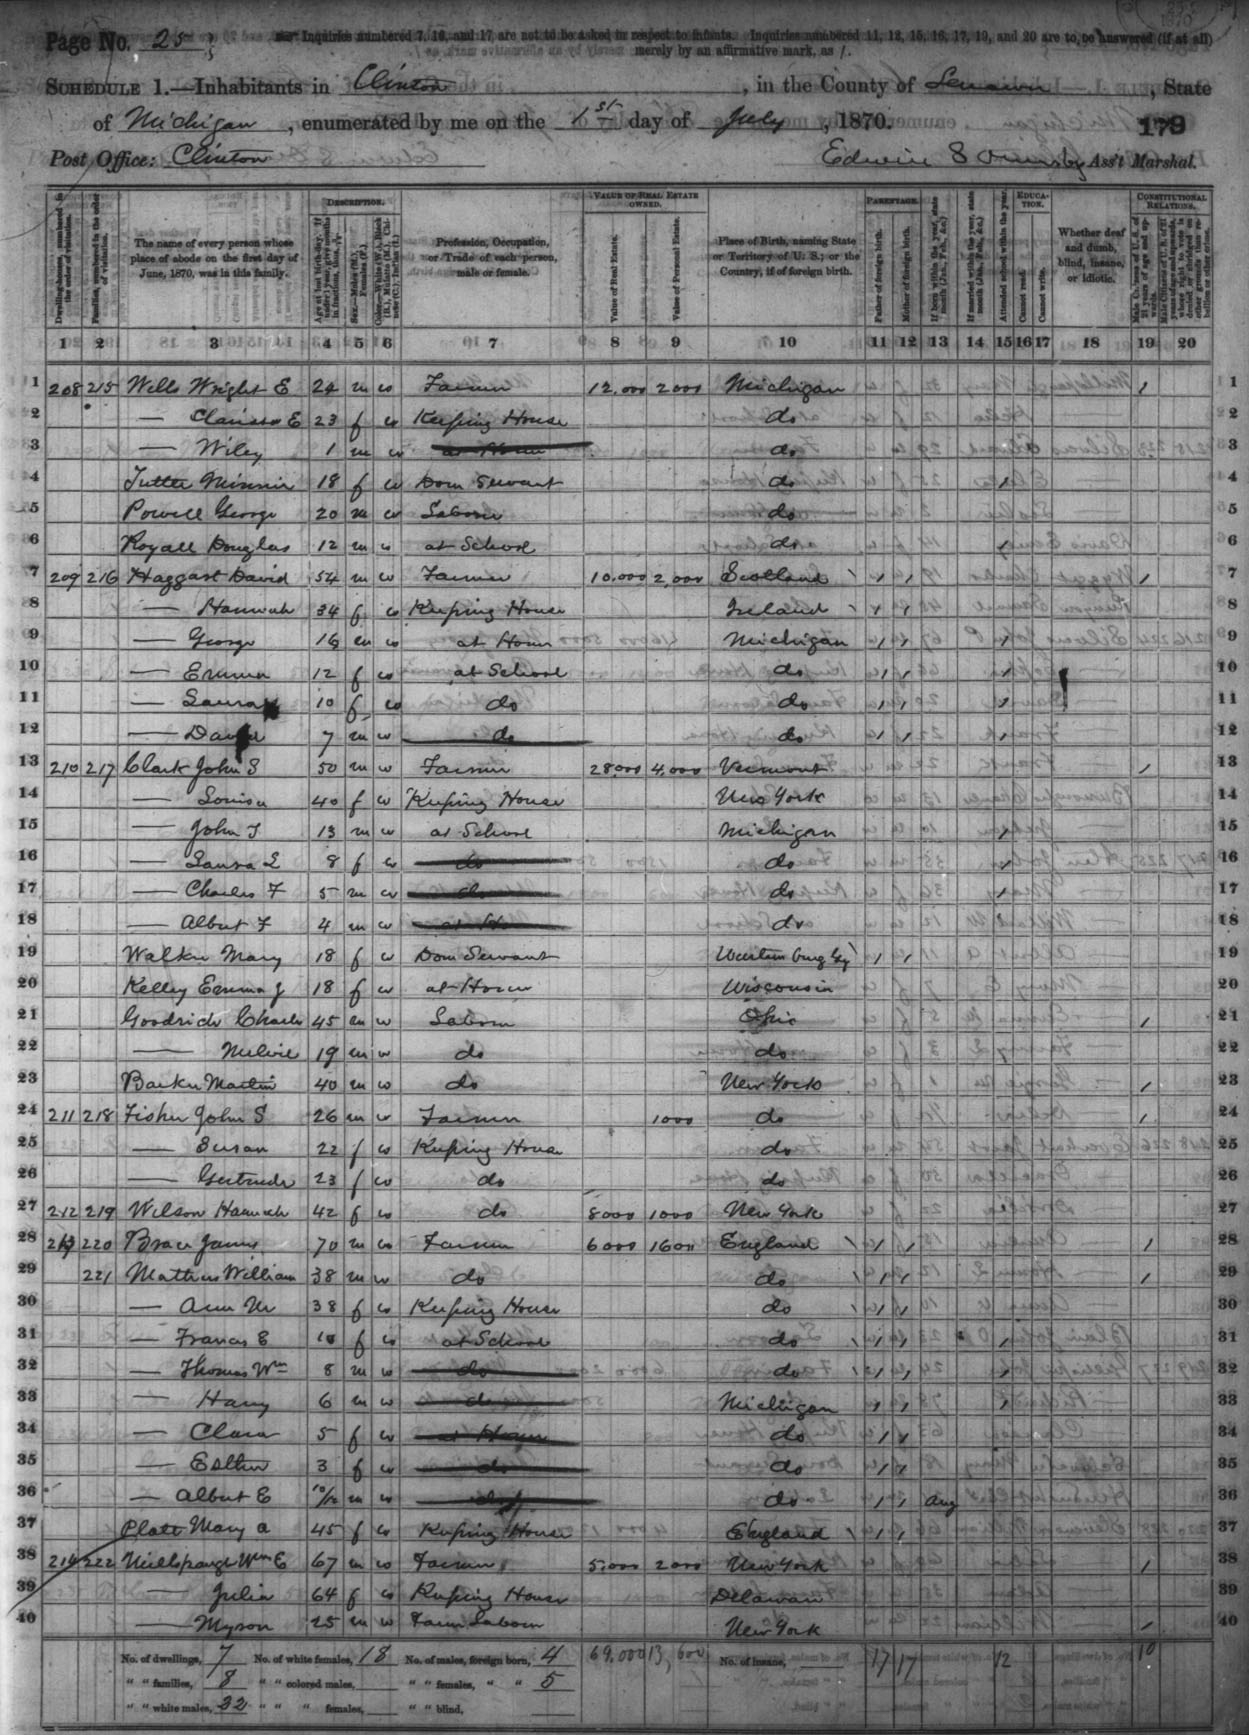 Page No. 25
Inquiries numbered 7, 16, and 17, are not to be asked in respect to infants. Inquiries numbered 11, 12, 15, 16, 17, 19, and 20 are to be answered (if at all)
merely by an affirmative mark, as /.
Schedule 1.—Inhabitants in Clinton, in the County of Lenawee, State
of Michigan, enumerated by me on the 1st day of July, 1870.
179
Post Office: Clinton
Edwin S Ormsby Ass't Marshal.
Description.
Value of Real Estate owned.
Parentage.
Education.
Constitutional Relations.
Dwelling-houses, numbered in the order of visitation.
Families, numbered in the order of visitation.
The name of every person whose place of abode on the first day of June, 1870, was in this family.
Age at last birth-day. If under 1 year, give months in fractions, thus, 3/12
Sex.—Males (M.), Females (F.)
Color.—White (W.), Black (B.), Mulatto (M.), Chinese (C.), Indian (I.)
Profession, Occupation, or Trade of each person, male or female.
Value of Real Estate.
Value of Personal Estate.
Place of Birth, naming State or Territory of U. S.; or the Country, if of foreign birth.
Father of foreign birth.
Mother of foreign birth.
If born within the year, state month (Jan., Feb., &c.)
If married within the year, state month (Jan., Feb., &c.)
Attended school within the year.
Cannot read.
Cannot write.
Whether deaf and dumb, blind, insane, or idiotic.
Male Citizens of U. S. of 21 years of age and upwards.
1 2 3 4 5 6 7 8 9 10 11 12 13 14 15 16 17 18 19 20
1 208 215 Wells Wright E 24 m w Farmer 12,000 2000 Michigan / 1
2 — Clarissa E 23 f w Keeping House do 2
3 — Wiley 1 m w at Home do 3
4 Tuttle Minnie 18 f w Dom Servant do / 4
5 Powell George 20 m w Laborer do 5
6 Royall Douglas 12 m w at School do / 6
7 209 216 Haggart David 54 m w Farmer 10,000 2,000 Scotland / / / 7
8 — Hannah 34 f w Keeping House Ireland / / 8
9 — George 16 m w at Home Michigan / / / 9
10 — Emma 12 f w at School do / / / 10
11 — Laura 10 f w do do / / / 11
12 — David 7 m w do do / / / 12
13 210 217 Clark John S 50 m w Farmer 28,000 4,000 Vermont / 13
14 — Louisa 40 f w Keeping House New York 14
15 — John T 13 m w at School Michigan / 15
16 — Laura L 8 f w do do / 16
17 — Charles F 5 m w do do / 17
18 — Albert F 4 m w at Ho do 18
19 Walker Mary 18 f w Dom Servant / / 19
20 Kelley Emma J 18 f w at Home Wisconsin 20
21 Goodrich Charles 45 m w Laborer Ohio / 21
22 — Melvie 19 m w do do 22
23 Barker Martin 40 m w do New York / 23
24 211 218 Fisher John S 26 m w Farmer 1000 do / 24
25 — Susan 22 f w Keeping House do 25
26 — Gertrude 23 f w do do 26
27 212 219 Wilson Hannah 42 f w do 8000 1000 New York 27
28 213 220 Brace James 70 m w Farmer 6000 1600 England / / / 28
29 221 Mathews William 38 m w do do / / / 29
30 — Ann M 38 f w Keeping House do / / 30
31 — Francis E 10 f w at School do / / / 31
32 — Thomas Wm 8 m w do do / / / 32
33 — Harry 6 m w do Michigan / / / 33
34 — Clara 5 f w at Home do / / 34
35 — Esther 3 f w do do / / 35
36 — Albert E 10/12 m w do do / / Aug 36
37 Platt Mary A 45 f w Keeping House England / / 37
38 214 222 Millspaugh Wm E 67 m w Farmer 5,000 2000 New York / 38
39 — Julia 64 f w Keeping House Delaware 39
40 — Myron 25 m w Farm Laborer New York / 40
No. of dwellings, 7 No. of white females, 18 No. of males, foreign born, 4 69,000 13,600 No. of insane, 17 17 12 10
" " families, 8 " " colored males, " " females, " " 5
" " white males, 22 " " " females, " " blind,